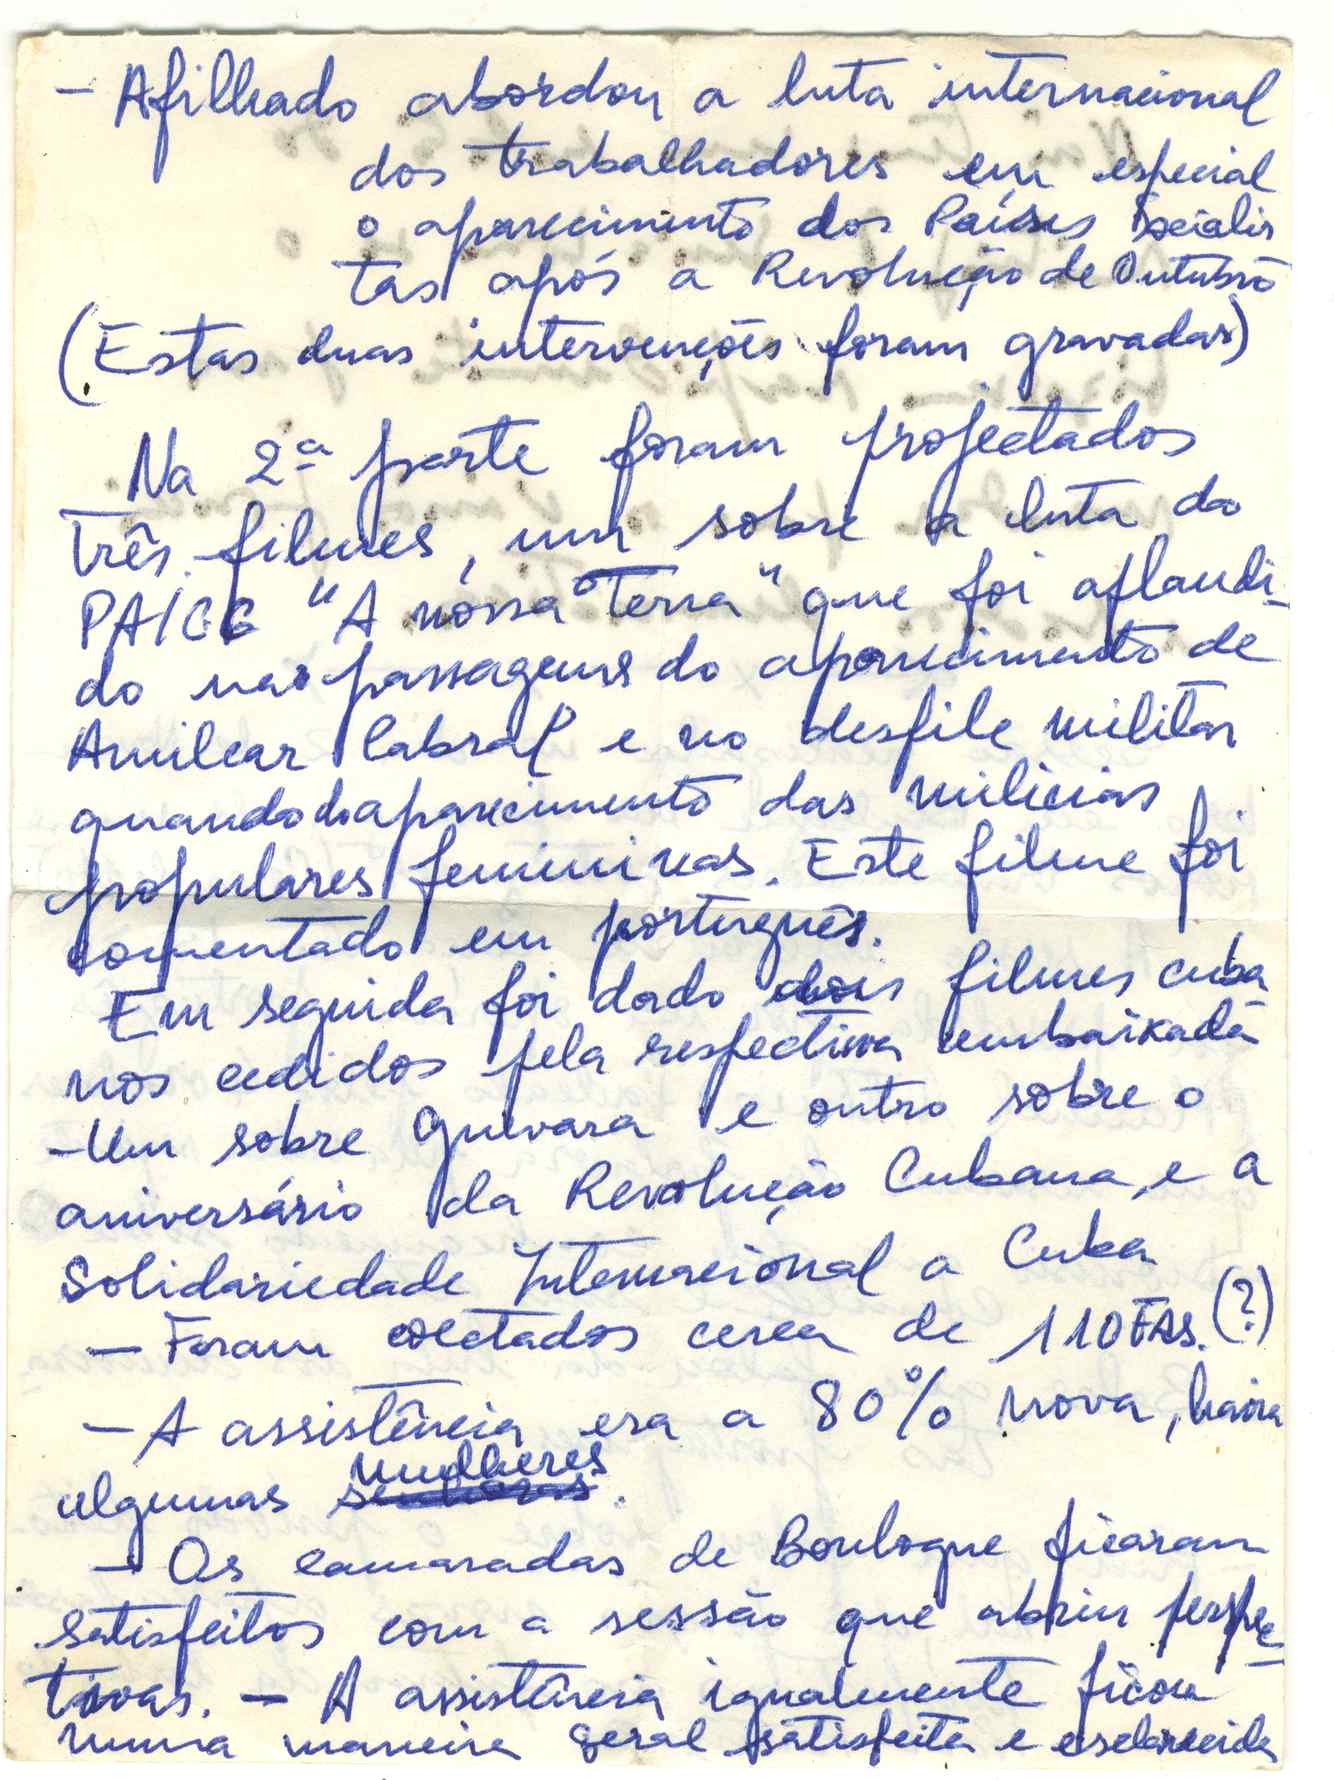 - Afilhado abordou a luta internacional
dos trabalhadores em especial
o aparecimento dos Países Socialis
tas após a Revolução de Outubro
(Estas duas intervenções foram gravadas)
Na 2ª parte foram projectados
três filmes, um sobre a luta do
PAIGC "A nóssa Terra" que foi aplaudi-
do nas passagens do aparecimento de
Amilcar Cabral e no desfile militar
quando do aparecimento das milicias
populares femininas. Este filme foi
comentado em português.
Em seguida foi dado dois filmes cuba
nos cedidos pela respectiva embaixada
-Um sobre Guevara e outro sobre o
aniversário da Revolução Cubana, e a
Solidariedade Internacional a Cuba
- Foram colectados cerca de 110 FRS. (?)
- A assistência era a 80% nova, havia
algumas mulheres.
- Os camaradas de Boulogne ficaram
satisfeitos com a sessão que abriu perspe-
tivas. - A assistência igualmente ficou
numa maneira geral satisfeita e esclarecida